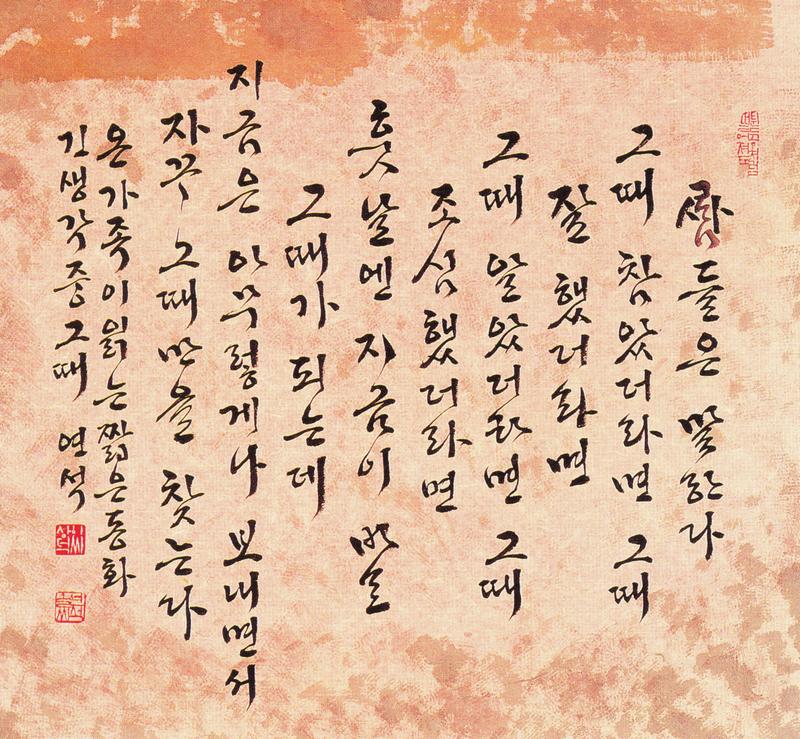 사람들은 말한다
그때 참았더라면 그때
잘 했더라면
그때 알았더라면 그때
조심했더라면
훗날엔 지금이 바로
그때가 되는데
지금은 아무렇게나 보내면서
자꾸 그때만을 찾는다
온가족이 읽는 짧은동화
긴생각중 그때 연석